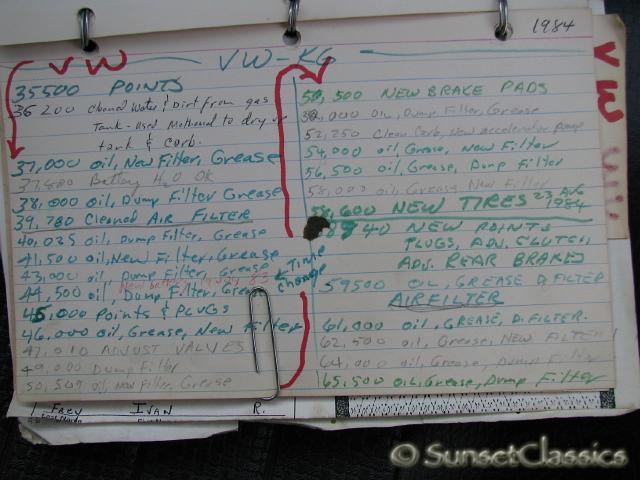 1984
VW
VW-KG
35500 POINTS
36 200 Cleaned Water & Dirt from gas
Tank-Used Methanol to dry up
tank & Carb.
37,000 oil, New Filter, Grease
37,800 Battery H2O OK
38,000 oil, Dump Filter Grease
39,780 Cleaned AIR FILTER
40,035 oil, Dump Filter, Grease
41,500 oil, New Filter, Grease
43,000 oil, Dump Filter, Grease
New battery
44,500 oil, Dump Filter, Grease
← Time
change
45,000 Points & PLUGS
46,000 oil, Grease, New Filter
47,010 ADJUST VALVES
49,000 Dump Filter
50,509 oil, New Filter, Grease
50,500 NEW BRAKE PADS
52,000 OIL, Dump Filter, Grease
52,250 Clean Carb, New accelerator pump
54,000 oil, Grease, New Filter
56,500 oil, Grease, Dump Filter
58,000 oil, Grease New Filter
58,600 NEW TIRES 23 AUG
1984
40 NEW POINTS
PLUGS, ADJ. CLUTCH,
ADJ. REAR BRAKES
59500 OIL, GREASE D. FILTER
AIRFILTER
61,000 oil, GREASE, D. FILTER
62,500 oil, Grease, NEW FILTER
64,000 oil, Grease, Dump Filter
65,500 oil, Grease, Dump Filter
VW
FREY IVAN R.
© SunsetClassics